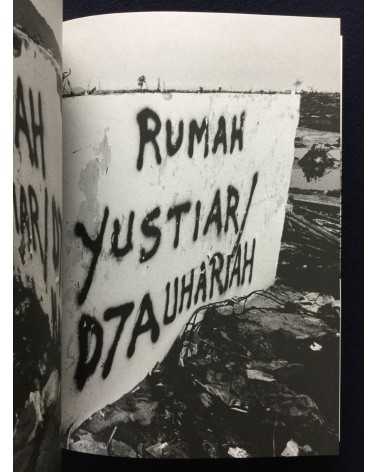 AH
AR/D
RUMAH
YUSTIAR/
D7AUHARIAH